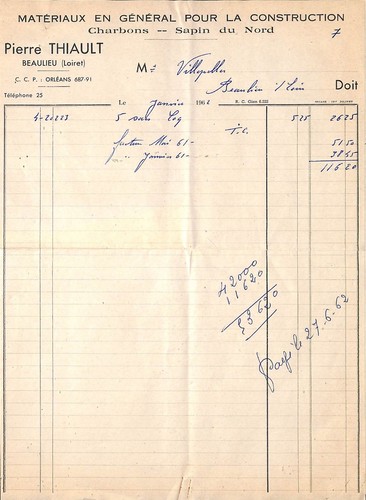 MATÉRIAUX EN GÉNÉRAL POUR LA CONSTRUCTION
Charbons -- Sapin du Nord
7
Pierre THIAULT
BEAULIEU (Loiret)
C. C. P. : ORLÉANS 687-91
Téléphone 25
M
Beaulieu s/Loire
Doit
Le janvier 196
R. C. Gien
5 sacs 525 2625
T.C.
facture Mai 61- 5150
" Janvier 61- 3845
11620
42000
11620
53620
Payé le 27-6-62